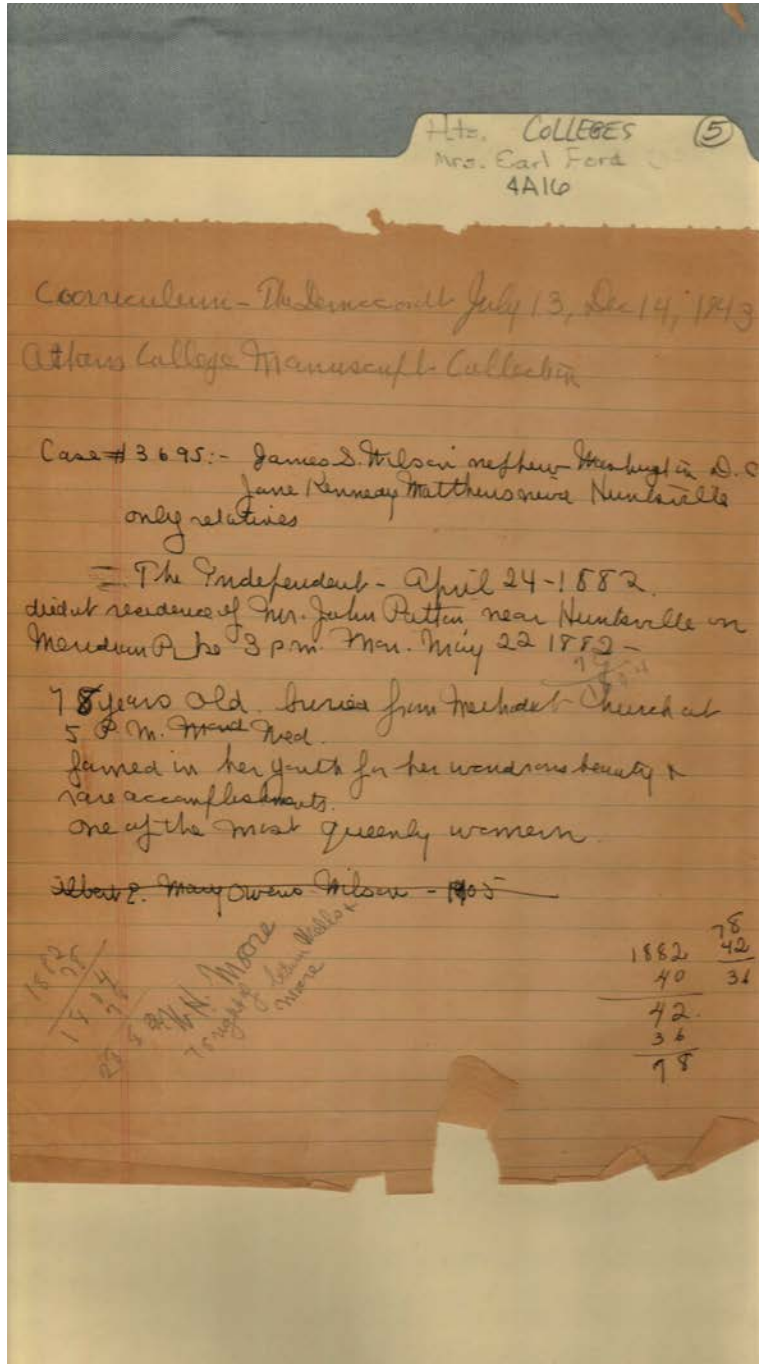 Hts. COLLEGES (5)
Mrs. Earl Ford
4A16
Coorriculum - The Democrat July 13, Dec 14, 1843
Athens College Manuscript Collection
Case #3695:- James S. Wilson nephew Washington D.C
Jane Kennedy Matthews niece Huntsville
only relatives
= The Independent - April 24-1882.
died at residence of Mr. John Patton near Huntsville on
Meridian Pike 3 p.m. Mon. May 22 1882 -
78 years old. buried from Methodist Church at
5 P.M. Wed.
famed in her youth for her wondrous beauty &
rare accomplishments.
one of the most queenly women
Mary Owens Wilson - 1905
1882
78
1804
78
W.H. Moore
right of
Moore
1882
40
42
36
78
78
42
36